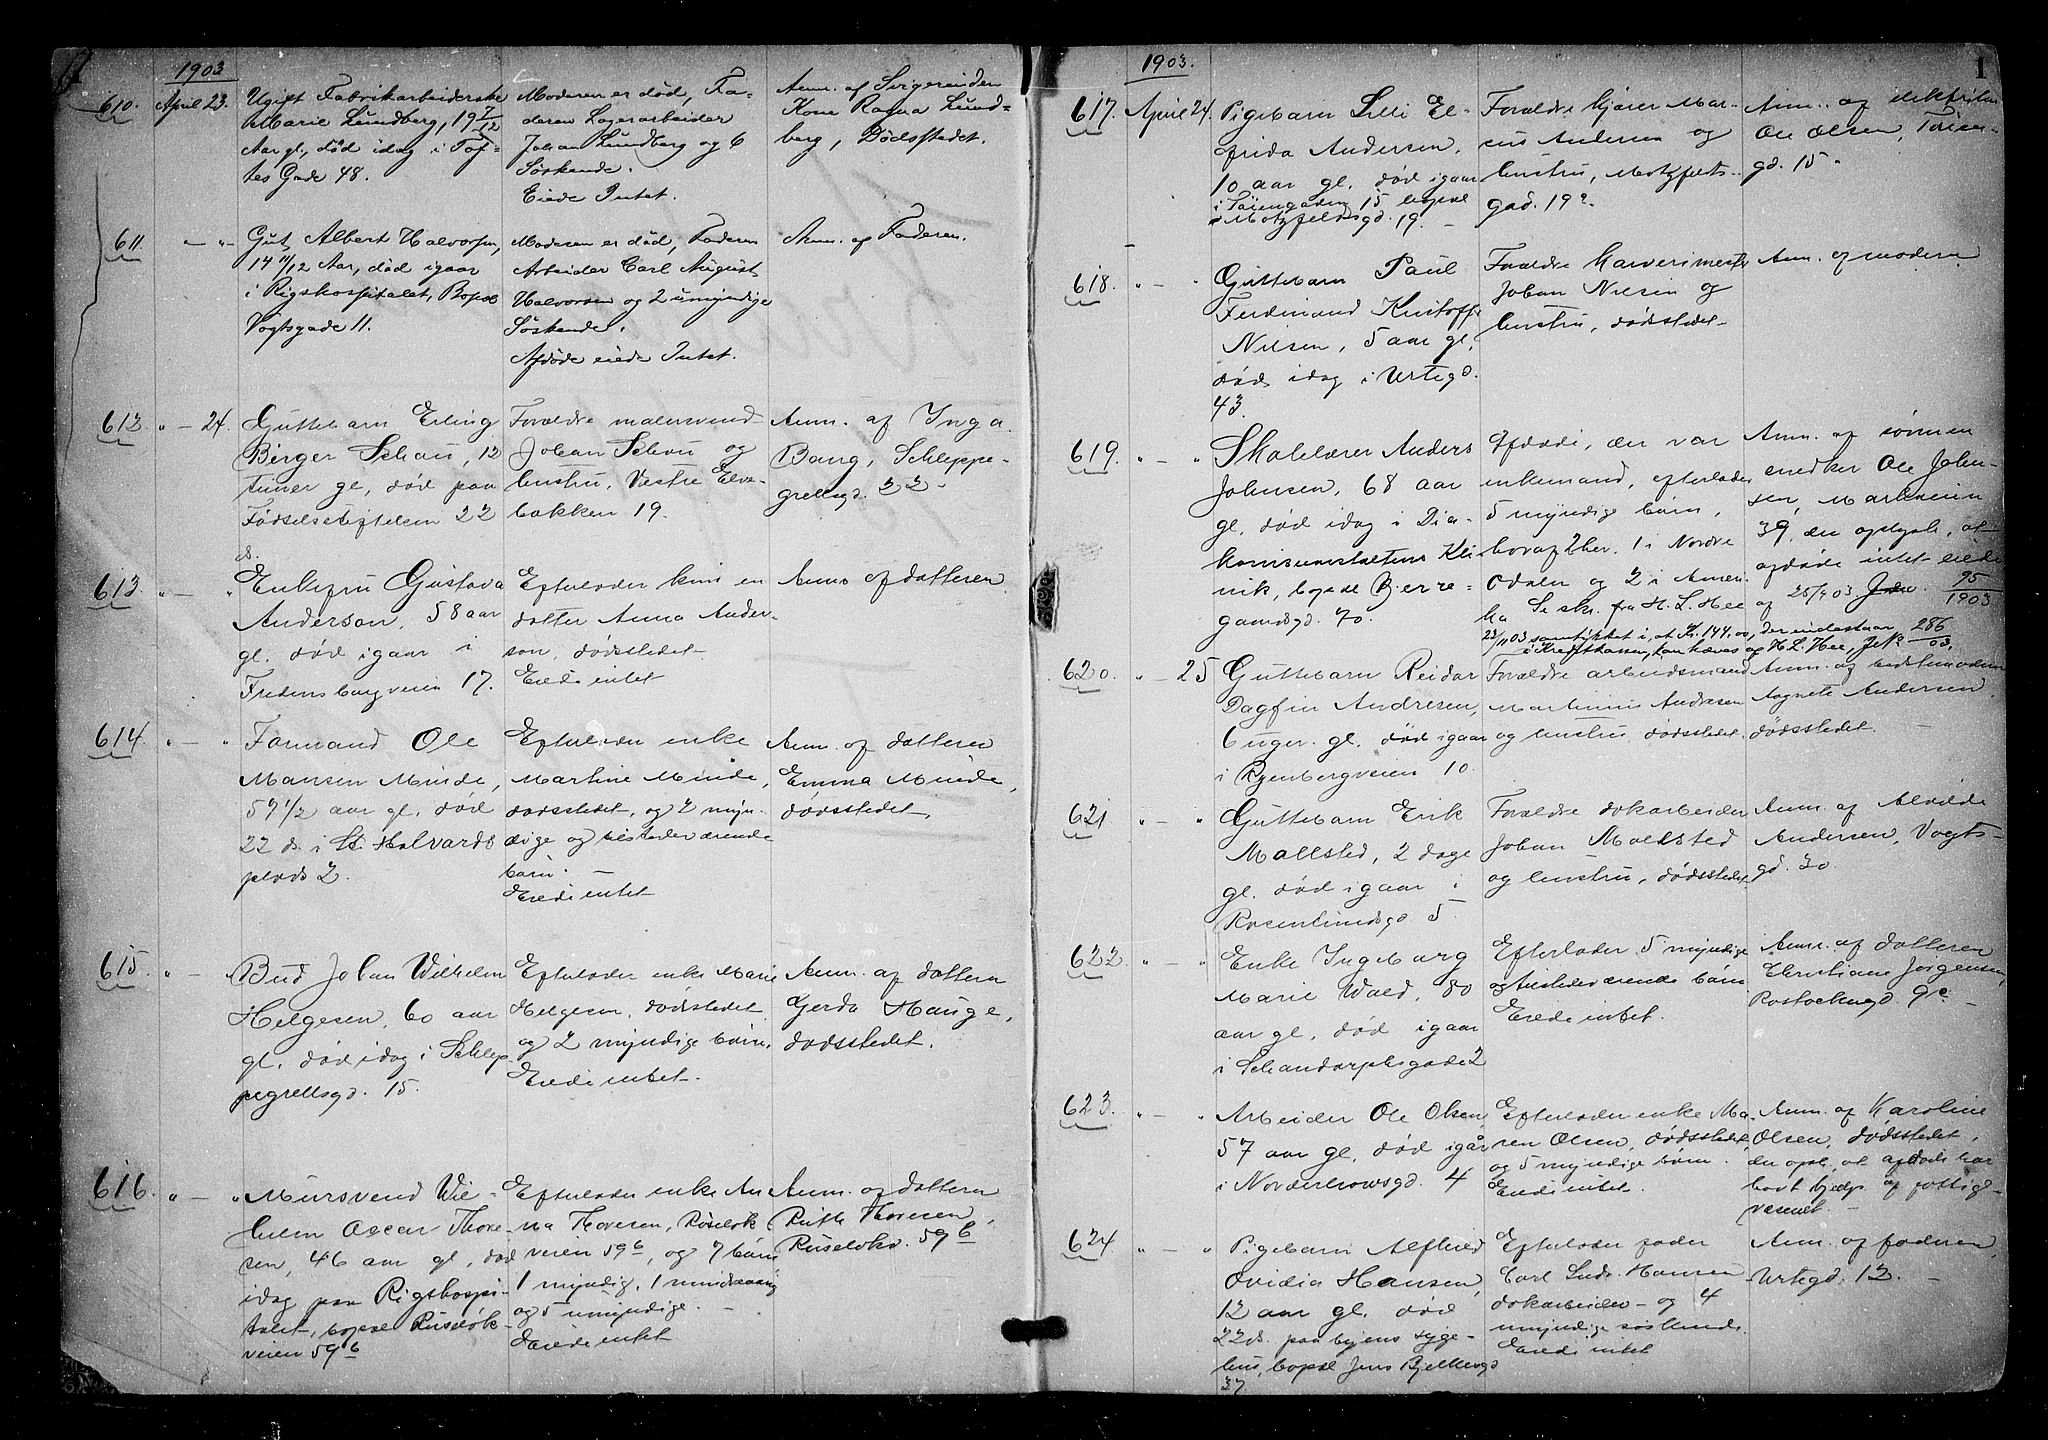 1903
610. April 23. Ugift Fabrikarbeiderske
Marie Lundberg, 19 7/12
Aar gl., død idag i Tof-
tes Gade 48.
Moderen er død, Fa-
deren Lagerarbeider
Johan Lundberg og 6
Søskende.
Eiede Intet.
Anm. af Svigerinden
Kone Ragna Lund-
berg, Dødsstedet.
611. — „ Gut Albert Halvorsen,
14 11/12 Aar, død igaar
i Rigshospitalet, Bopæl
Vogtsgade 11.
Moderen er død, Faderen
Arbeider Carl August
Halvorsen og 2 umyndige
Søskende.
Afdøde eiede Intet.
Anm. af Faderen.
612 „ — 24. Guttebarn Erling
Birger Schou, 12
timer gl., død paa
Fødselsstiftelsen 22
ds.
Forældre malersvend
Johan Schou og
hustru, Vestre Elve-
bakken 19.
Anm. af Inga
Bang, Schleppe-
grellsgd. 22
613. „ — „ Enkefru Gustava
Anderson, 58 aar
gl. død igaar i
Fredensborgveien 17.
Efterlader kun en
datter Anna Ander-
son, dødsstedet.
Eiede intet
Anm. af datteren
614. „ — „ Formand Ole
Hansen Minde,
59 1/2 aar gl. død
22 ds. i St. Halvards
plads 2.
Efterlader enke
Martine Minde,
dødsstedet, og 2 myn-
dige og tilstedeværende
børn.
Eiede intet
Anm. af datteren
Emma Minde,
dødsstedet.
615. „ — Bud Johan Wilhelm
Helgesen, 60 aar
gl. død idag i Schlep
pegrellsgd. 15.
Efterlader enke Marie
Helgesen, dødsstedet,
og 2 myndige børn.
Eiede intet.
Anm. af datteren
Gerda Hauge,
dødsstedet.
616. „ — „ Mursvend Wil-
helm Oscar Thore-
sen, 46 aar gl, død
idag paa Rigshospi-
talet, bopæl Ruseløk-
veien 59 b
Efterlader enke An
na Thoresen, Ruseløk
veien 59 b, og 7 børn
1 myndig, 1 mindreaarig
og 5 umyndige.
Eiede intet
Anm. af datteren
Ruth Thoresen,
Ruseløkv. 59 b
1903.
1
617. April 24. Pigebarn Lilli El-
frida Andersen,
10 aar gl. død igaar
i Tøiengaden 15 bopæl
Motzfeldsgd. 19.
Forældre kjører Mar-
cus Andersen og
hustru, Motzfeldts-
gad. 19
Anm. af
Ole Olsen, Tøien-
gd. 15.
618. „ — „ Guttebarn Paul
Ferdinand Kristoffer
Nielsen, 5 aar gl,
død idag i Urtegd.
43.
Forældre garverimester
Johan Nielsen og
hustru, dødsstedet
Anm. af moderen
619. „ — „ Skolelærer Anders
Johnsen, 68 aar
gl, død idag i Dia-
konisseanstaltens Kli
nik, bopæl Bjerre-
gaardsgd. 70.
Afdøde, der var
enkemand, efterlader
5 myndige børn,
hvoraf 2 her, 1 i Nordre
Odalen og 2 i Ameri
ka Se skr. fra H. L. Hee
af 25/4 03 95/1903
23/11 03 samtykket i, at Kr. 144.00, der indestaar
i Kreditkassen, kan hæves af H. L. Hee, 286/03.
Anm. af sønnen
snedker Ole John-
sen, Markveien
39, der opgav, at
afdøde intet eiede
620. „ — 25 Guttebarn Reidar
Dagfin Andresen,
6 uger gl. død igaar
i Ryenbergveien 10
Forældre arbeidsmand
Martinius Andresen
og hustru, dødsstedet.
Anm. af bedstemoderen
Aagnete Andersen,
dødsstedet.
621 „ — „ Guttebarn Erik
Mallsted, 2 dage
gl. død igaar i
Rosenlundsgd. 5
Forældre dokarbeider
Johan Mallsted
og hustru, dødsstedet
Anm. af Alvilde
Andersen, Vogts-
gd. 30.
622. „ — „ Enke Ingeborg
Marie Wold, 80
aar gl, død igaar
i Schandorphsgade 2
Efterlader 5 myndige
og tilstedeværende børn
Eiede intet.
Anm. af datteren
Christiane Jørgensen,
Rostockergd. 9
623. „ — „ Arbeider Ole Olsen,
57 aar gl. død igår
i Nordre 4
Efterlader enke Ma-
ren Olsen, dødsstedet
og 5 myndige børn.
Eiede intet.
Anm. af Karoline
Olsen, dødsstedet,
der opl., at afdøde har
havt hjælp af fattig-
væsenet.
624. „ — „ Pigebarn Alfhild
Ovidia Hansen,
12 aar gl. død
22 ds. paa byens syge-
hus, bopæl Jens Bjelkesgd
37.
Efterlader fader
Carl Ludv. Hansen
dokarbeider og 4
umyndige søskende.
Eiede intet
Anm. af faderen,
Urtegd. 12.